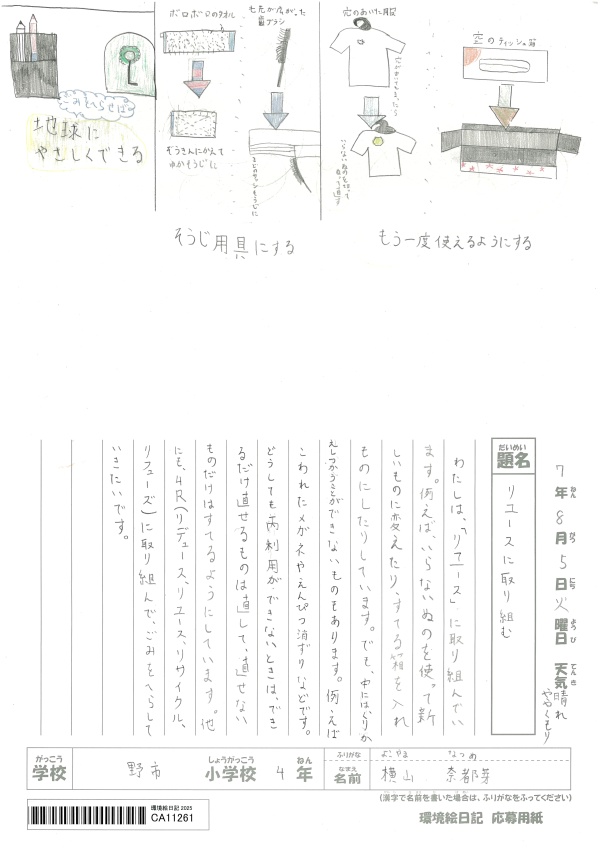 ごみをへらせば
地球に
やさしくできる
ボロボロのタオル
ぞうきんにかえて
ゆかそうじに
毛先が広がった
歯ブラシ
まどのサッシそうじに
そうじ用具にする
穴のあいた服
穴があいてしまったら
いらないぬのを切って
ぬって直す
空のティッシュ箱
もう一度使えるようにする
7年8月5日火曜日 天気晴れ
ねん がつ にち ようび てんき
ややくもり
だいめい
題名
リユースに取り組む
わたしは、「リユース」に取り組んでい
ます。例えば、いらないぬのを使って新
しいものに変えたり、すてる箱を入れ
ものにしたりしています。でも、中にはくりか
えしつかうことができないものもあります。例えば
こわれたメガネやえんぴつ消ずりなどです。
どうしても再利用ができないときはでき
るだけ直せるものは直して、直せない
ものだけはすてるようにしています。他
にも、4R(リデュース、リユース、リサイクル、
リフューズ)に取り組んで、ごみをへらして
いきたいです。
がっこう
学校
野市
しょうがっこう
小学校
4
ねん
年
ふりがな
よこやま なつめ
なまえ
名前
横山 奈都芽
(漢字で名前を書いた場合は、ふりがなをふってください)
環境絵日記 2025
CA11261
環境絵日記 応募用紙